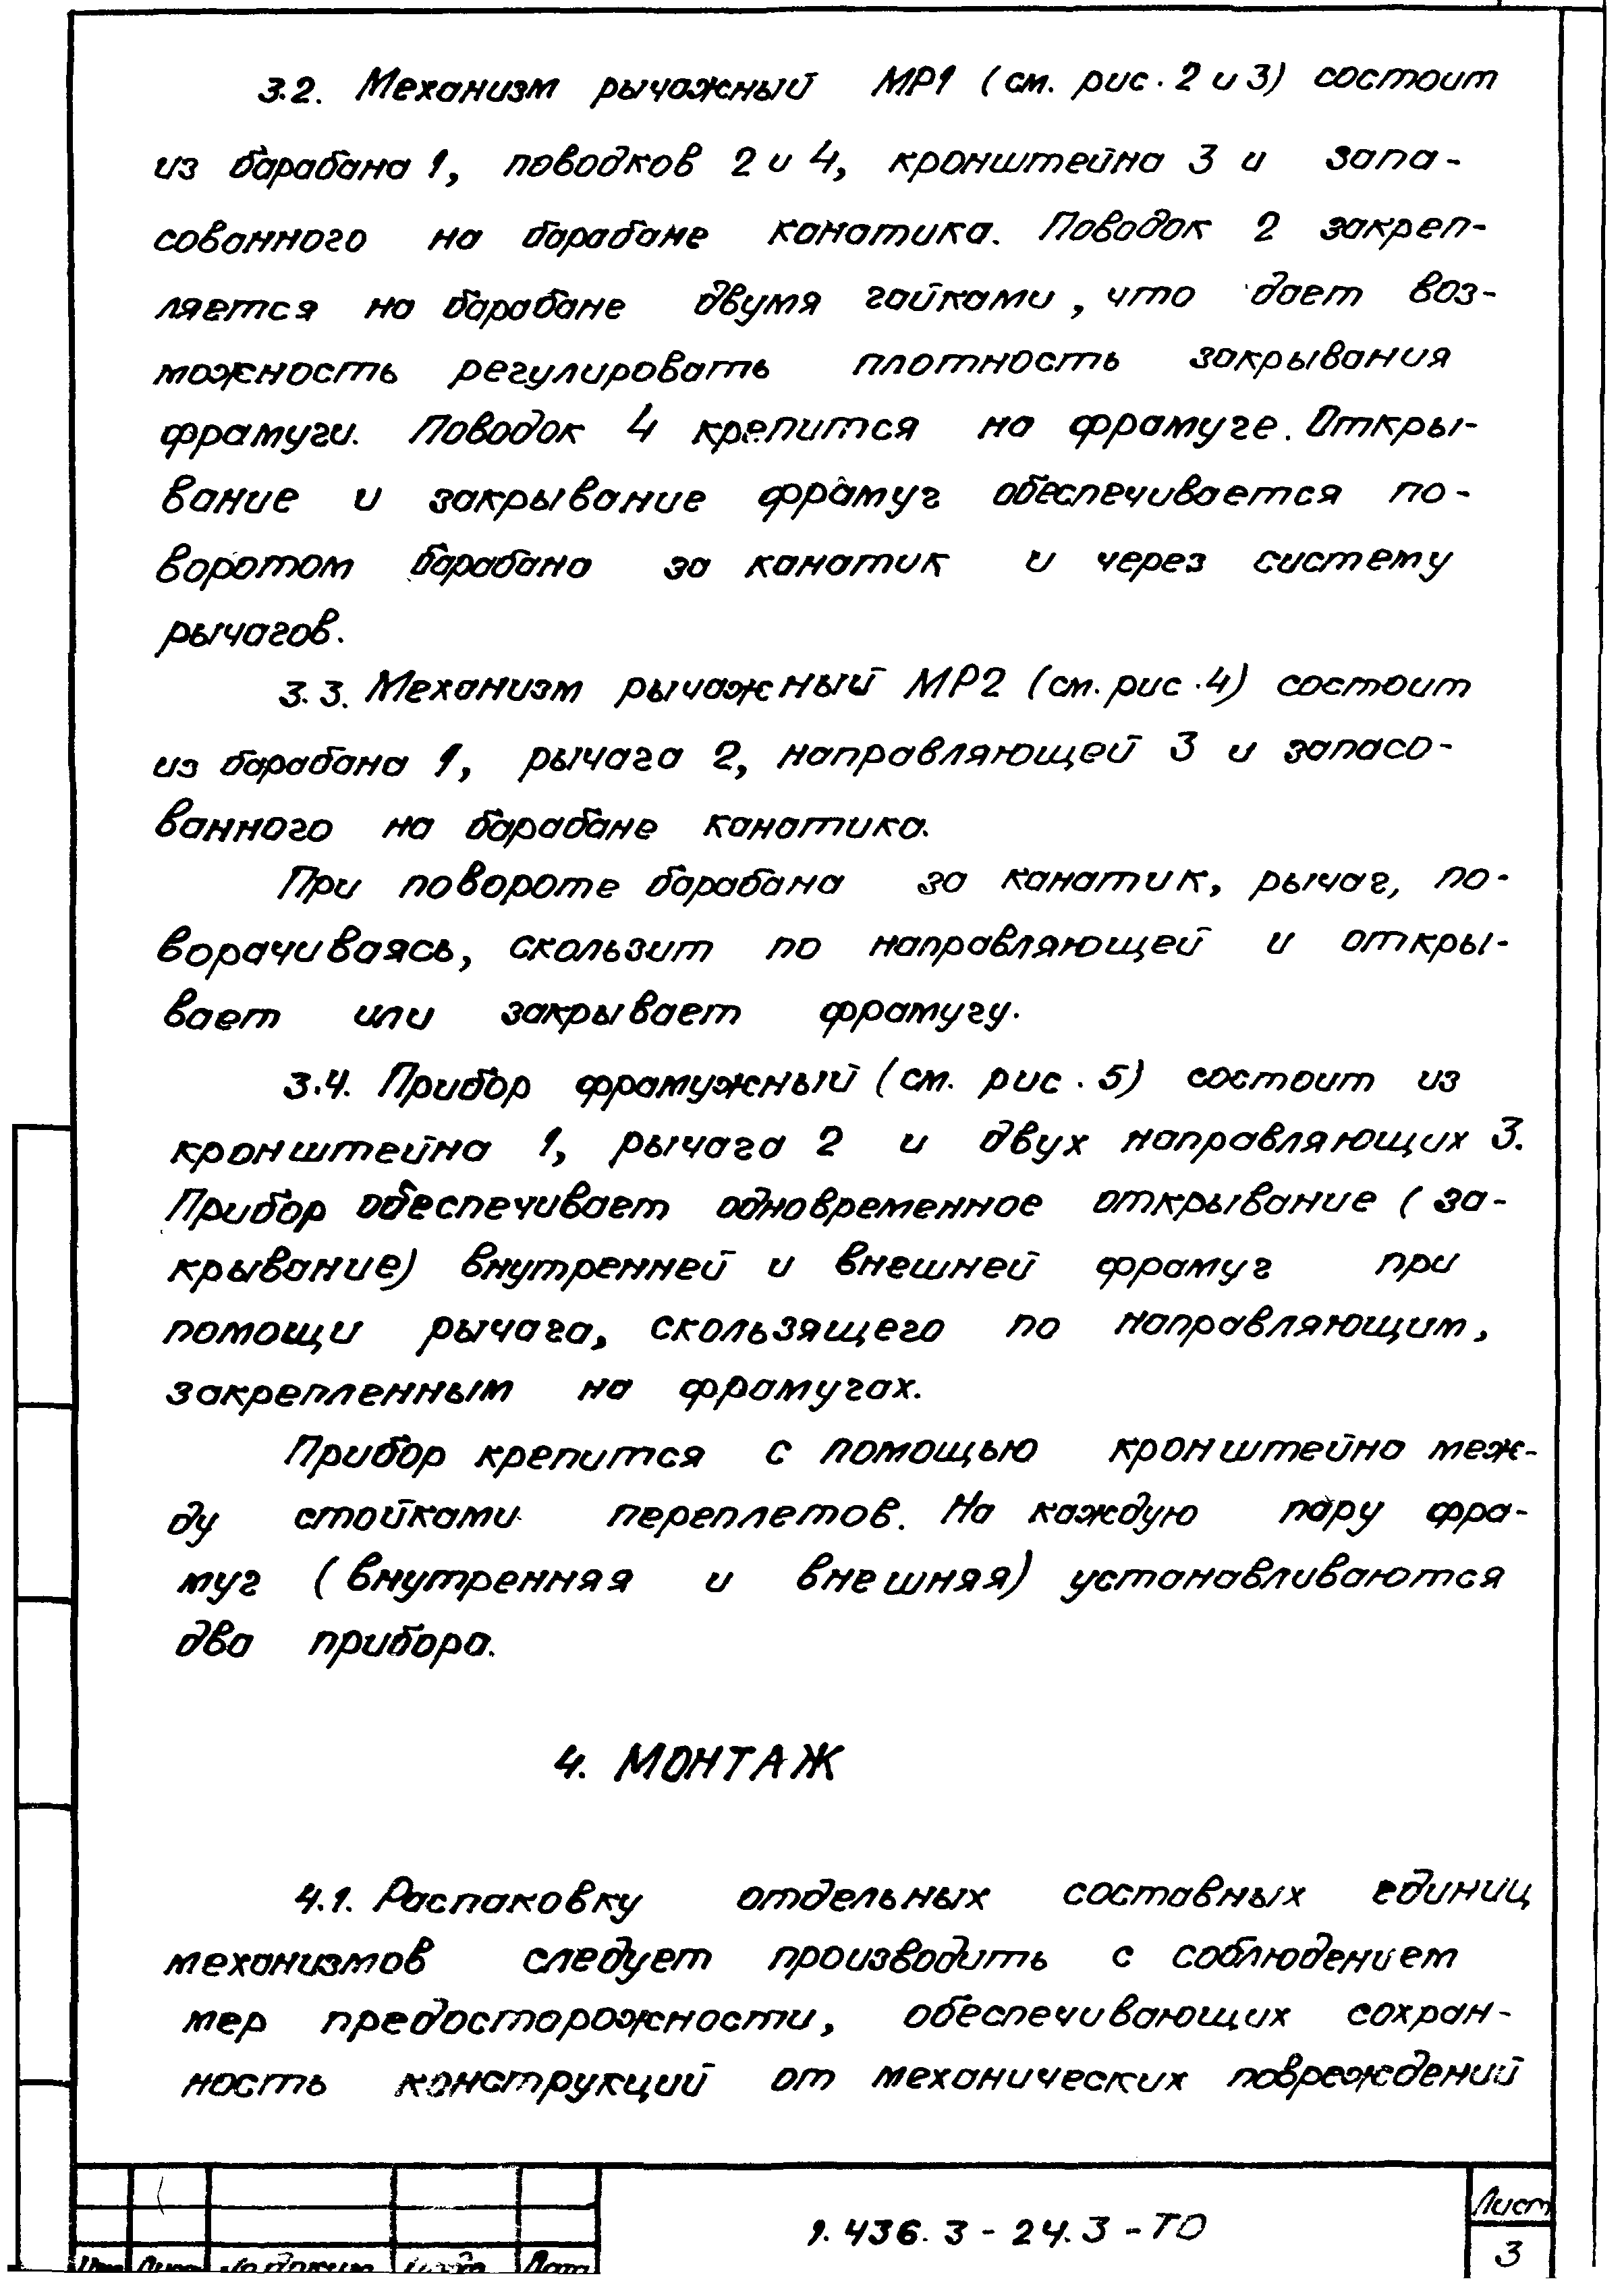 3.2. Механизм рычажный МР1 (см. рис. 2 и 3) состоит
из барабана 1, поводков 2 и 4, кронштейна 3 и запа-
сованного на барабане канатика. Поводок 2 закреп-
ляется на барабане двумя гайками, что дает воз-
можность регулировать плотность закрывания
фрамуги. Поводок 4 крепится на фрамуге. Откры-
вание и закрывание фрамуг обеспечивается по-
воротом барабана за канатик и через систему
рычагов.
3.3. Механизм рычажный МР2 (см. рис. 4) состоит
из барабана 1, рычага 2, направляющей 3 и запасо-
ванного на барабане канатика.
При повороте барабана за канатик, рычаг, по-
ворачиваясь, скользит по направляющей и откры-
вает или закрывает фрамугу.
3.4. Прибор фрамужный (см. рис. 5) состоит из
кронштейна 1, рычага 2 и двух направляющих 3.
Прибор обеспечивает одновременное открывание (за-
крывание) внутренней и внешней фрамуг при
помощи рычага, скользящего по направляющим,
закрепленным на фрамугах.
Прибор крепится с помощью кронштейна меж-
ду стойками переплетов. На каждую пару фра-
муг (внутренняя и внешняя) устанавливаются
два прибора.
4. МОНТАЖ
4.1. Распаковку отдельных составных единиц
механизмов следует производить с соблюдением
мер предосторожности, обеспечивающих сохран-
ность конструкций от механических повреждений
1.436.3-24.3-ТО
Лист
3
Лист
Дата